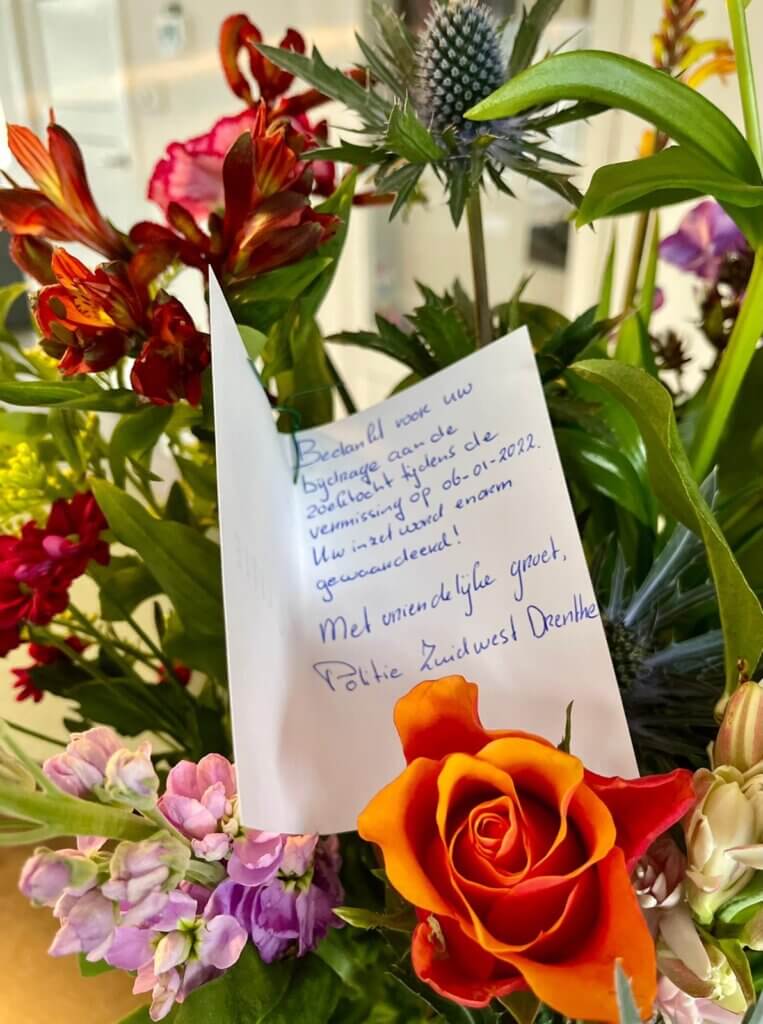 Bedankt voor uw
bijdrage aan de
zoektocht tijdens de
vermissing op 06-01-2022.
Uw inzet word enorm
gewaardeerd!
Met vriendelijke groet,
Politie Zuidwest Drenthe